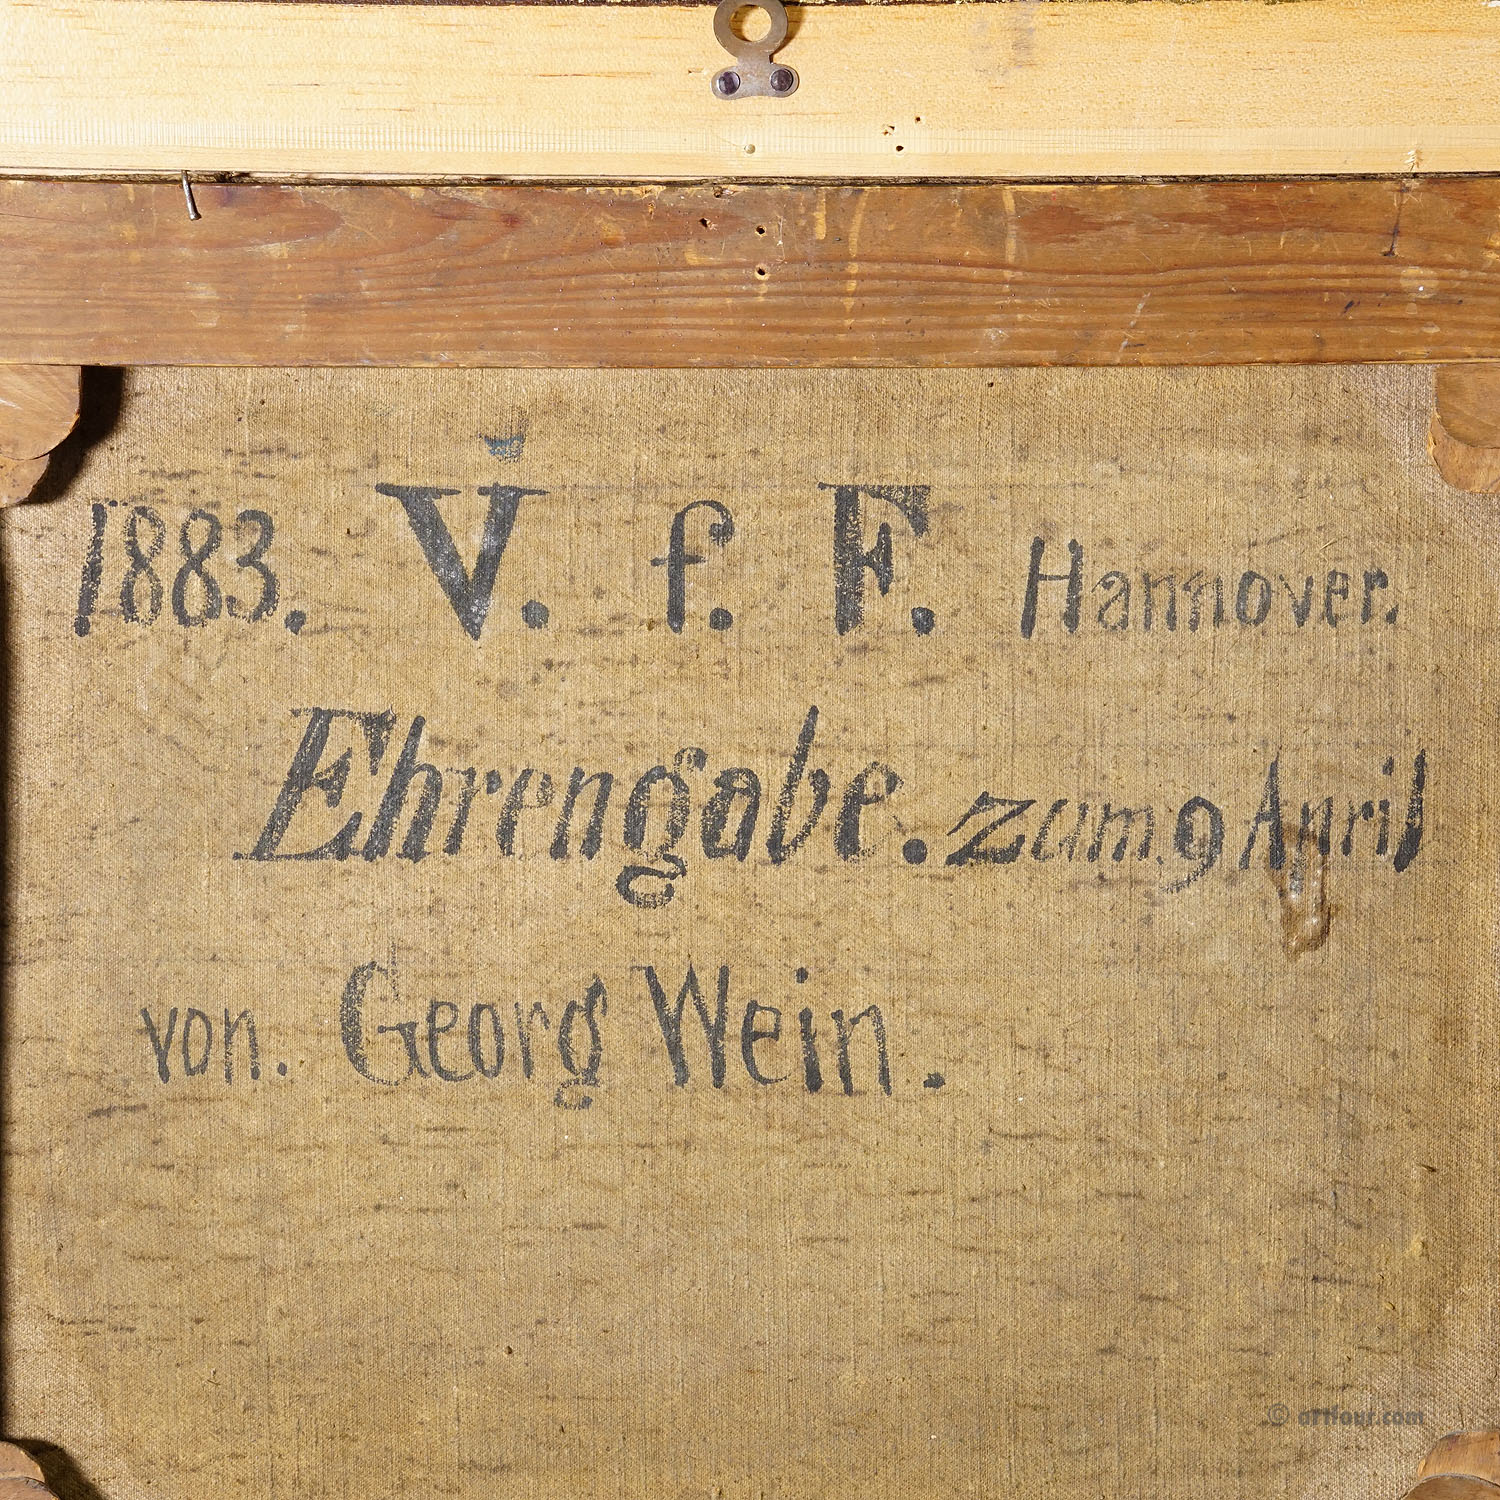 1883. V. f. F. Hannover.
Ehrengabe. zum. 9 April
von. Georg Wein.
© artfour.com